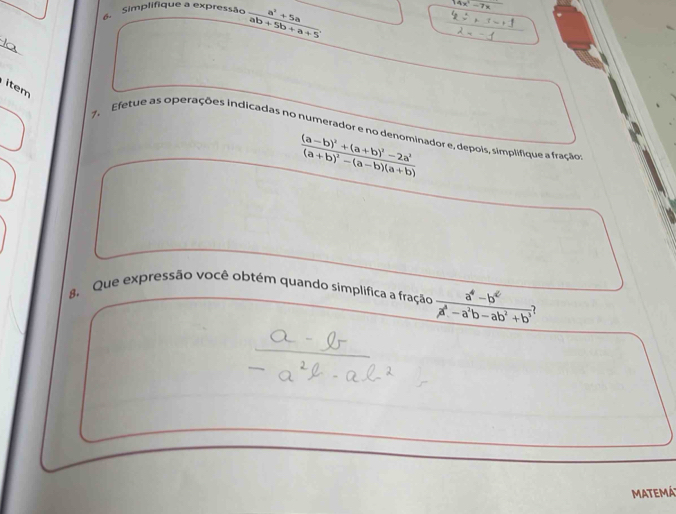 14x² - 7x
6. Simplifique a expressão (a² + 5a)/(ab + 5b + a + 5).
item
7. Efetue as operações indicadas no numerador e no denominador e, depois, simplifique a fração:
((a - b)² + (a + b)² - 2a²)/((a + b)² - (a - b)(a + b))
8. Que expressão você obtém quando simplifica a fração (a⁴ - b⁴)/(a³ - a²b - ab² + b³)?
a - b
- a²b - ab²
MATEMÁ